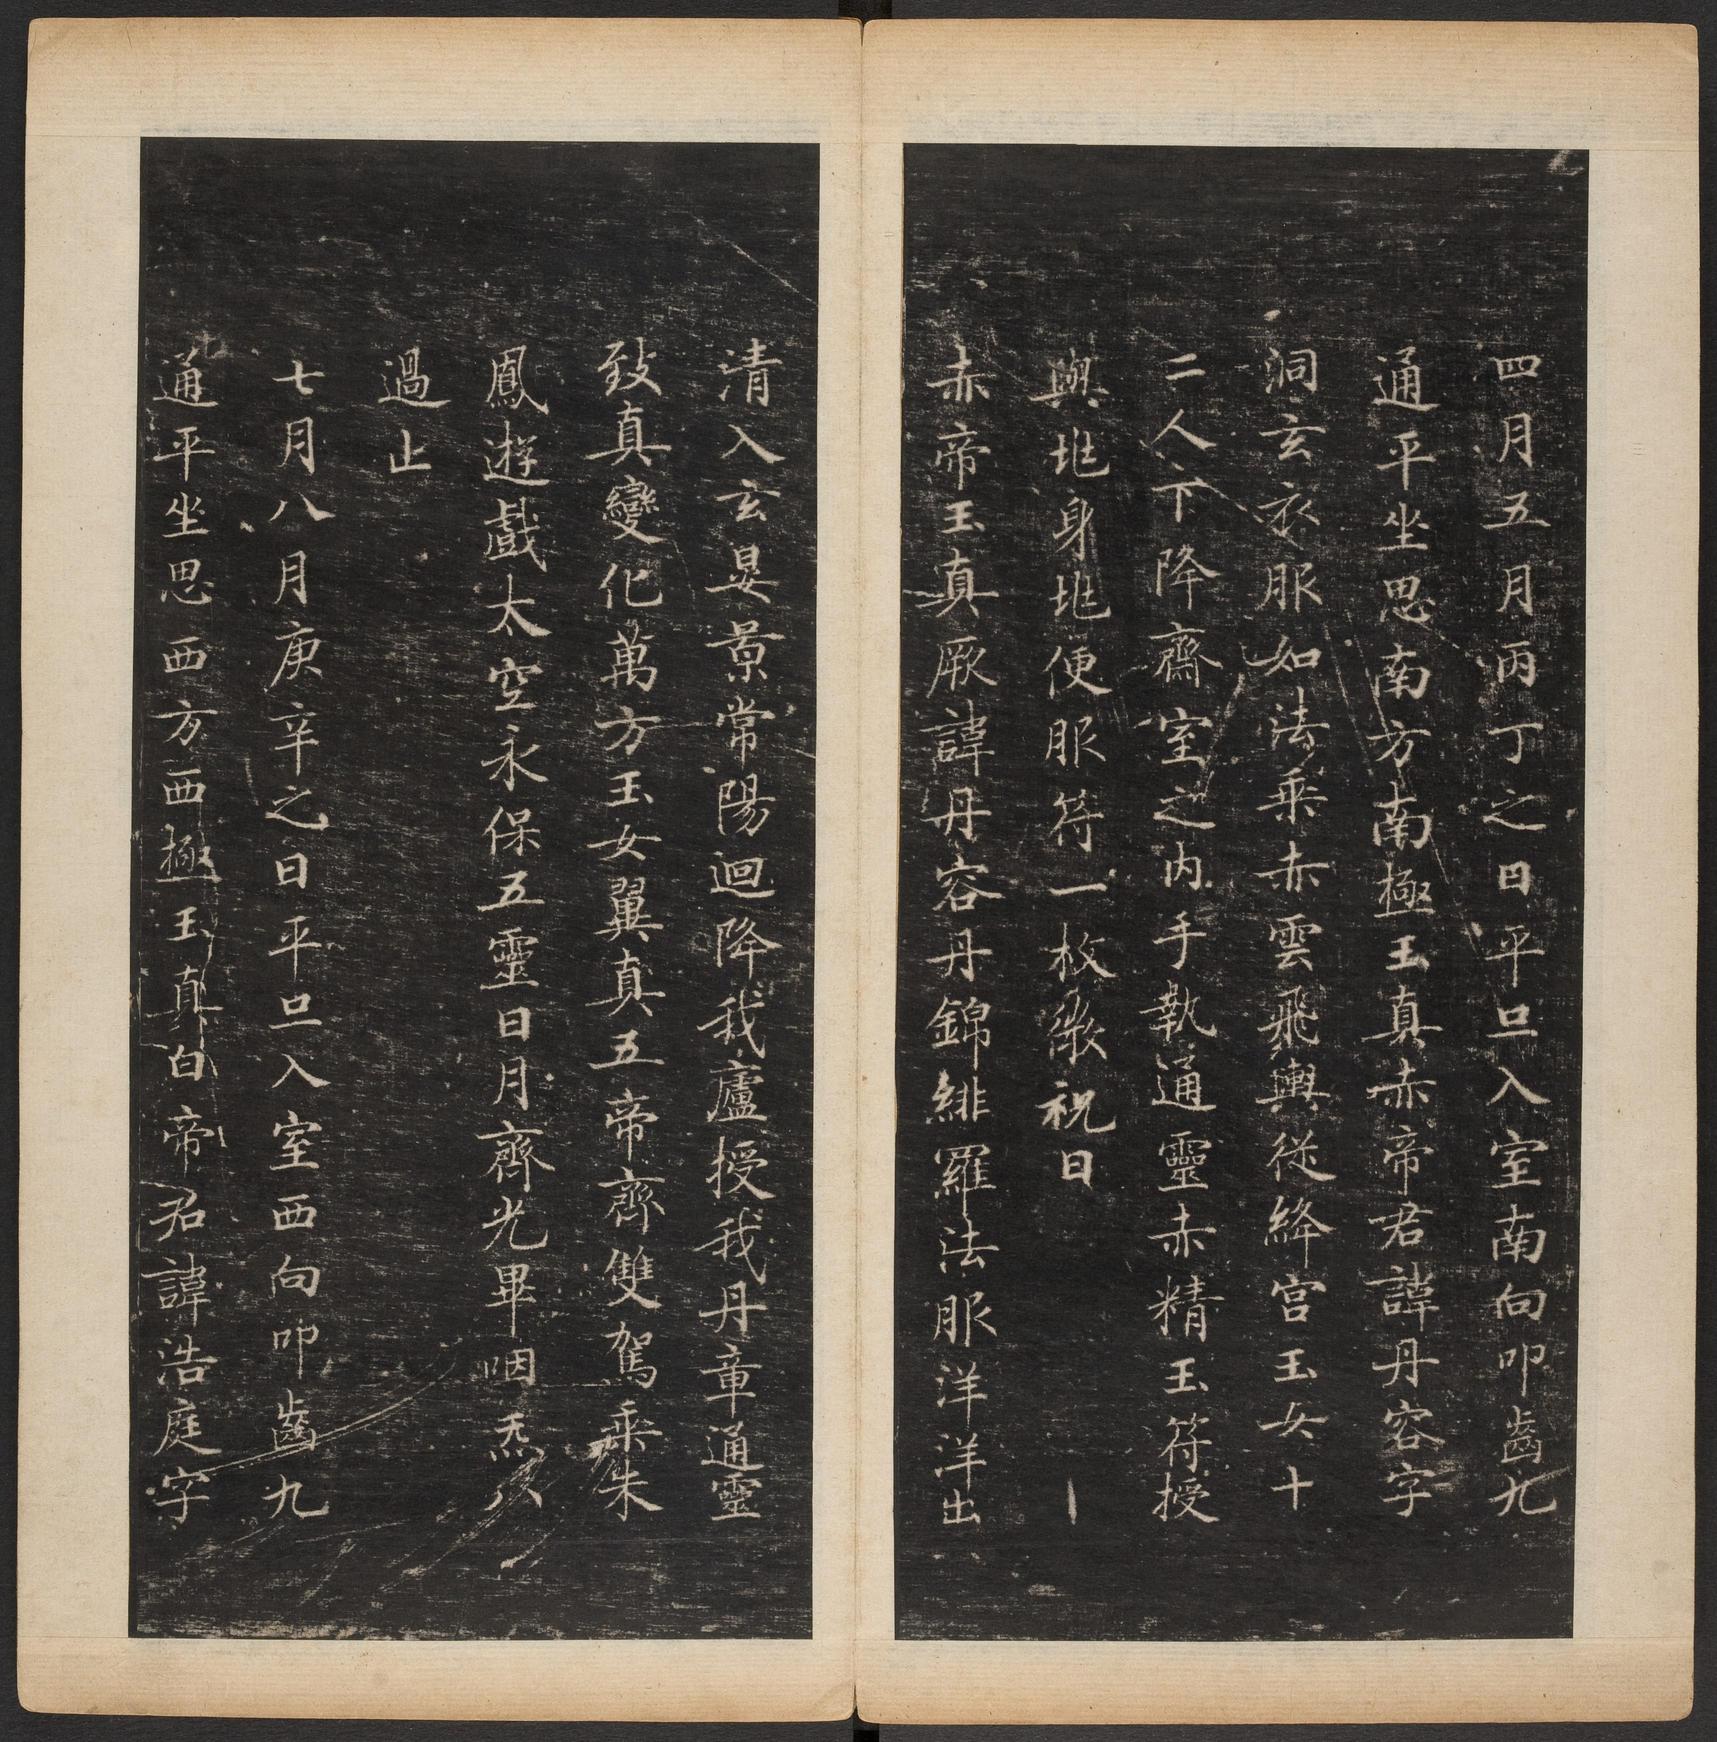 四月五月丙丁之日平旦入室南向叩齒九
通平坐思南方南極玉真赤帝君諱丹容字
洞玄衣服如法乘赤雲飛輿從絳宮玉女十
二人下降齋室之内手執通靈赤精玉符授
與地身地便服符一枚微祝曰
赤帝玉真厥諱丹容丹錦緋羅法服洋洋出
清入玄晏景常陽迴降我廬授我丹章通靈
致真變化萬方玉女翼真五帝齊雙駕乘朱
鳳遊戲太空永保五靈日月齊光畢咽炁八
過止
七月八月庚辛之日平旦入室西向叩齒九
通平坐思西方西極玉真白帝君諱浩庭字